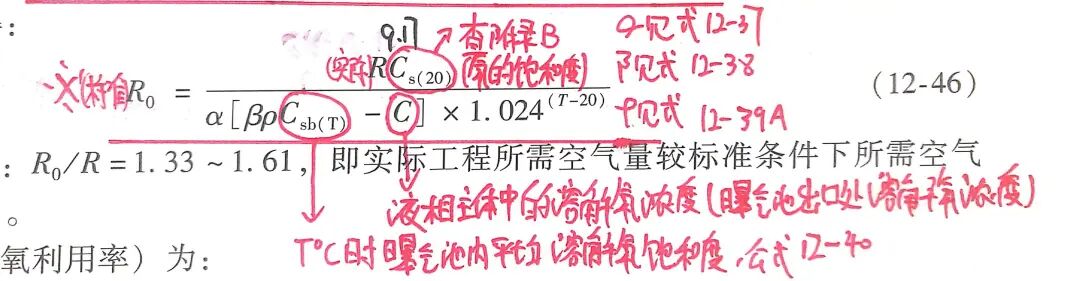 9.17 查附录B α见式12-37
※(标准) R₀ = (实际)RC_{s(20)} (氧的饱和度) / α[βρC_{sb(T)} - C] × 1.024^{(T-20)} β见式12-38 (12-46)
ρ见式12-39A
: R₀/R = 1.33 ~ 1.61, 即实际工程所需空气量较标准条件下所需空气
。 液相主体中的溶解氧浓度(曝气池出口处溶解氧浓度)
氧利用率)为: T°C时曝气池内平均溶解氧饱和度,公式12-40